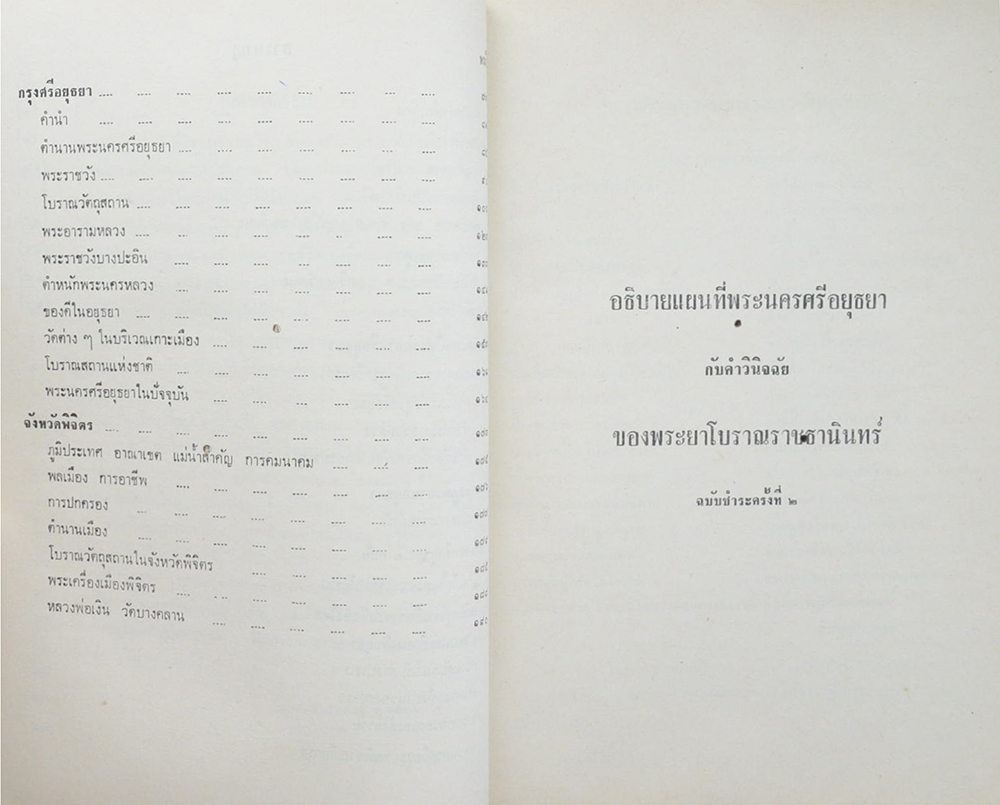 กรุงศรีอยุธยา .... .... .... .... .... .... .... .... ....
คำนำ .... .... .... .... .... .... .... .... ....
ตำนานพระนครศรีอยุธยา .... .... .... .... .... .... ....
พระราชวัง .... .... .... .... .... .... .... .... ....
โบราณวัตถุสถาน .... .... .... .... .... .... .... ....
พระอารามหลวง .... .... .... .... .... .... .... ....
พระราชวังบางปะอิน .... .... .... .... .... .... ....
ตำหนักพระนครหลวง .... .... .... .... .... .... ....
ของดีในอยุธยา .... .... .... .... .... .... .... ....
วัดต่าง ๆ ในบริเวณเกาะเมือง .... .... .... .... .... ....
โบราณสถานแห่งชาติ .... .... .... .... .... .... ....
พระนครศรีอยุธยาในปัจจุบัน .... .... .... .... .... ....
จังหวัดพิจิตร .... .... .... .... .... .... .... .... ....
ภูมิประเทศ อาณาเขต แม่น้ำสำคัญ การคมนาคม .... .... ....
พลเมือง การอาชีพ .... .... .... .... .... .... ....
การปกครอง .... .... .... .... .... .... .... ....
ตำนานเมือง .... .... .... .... .... .... .... ....
โบราณวัตถุสถานในจังหวัดพิจิตร .... .... .... .... ....
พระเครื่องเมืองพิจิตร .... .... .... .... .... .... ....
หลวงพ่อเงิน วัดบางคลาน .... .... .... .... .... ....
อธิบายแผนที่พระนครศรีอยุธยา
กับคำวินิจฉัย
ของพระยาโบราณราชธานินทร์
ฉบับชำระครั้งที่ ๒